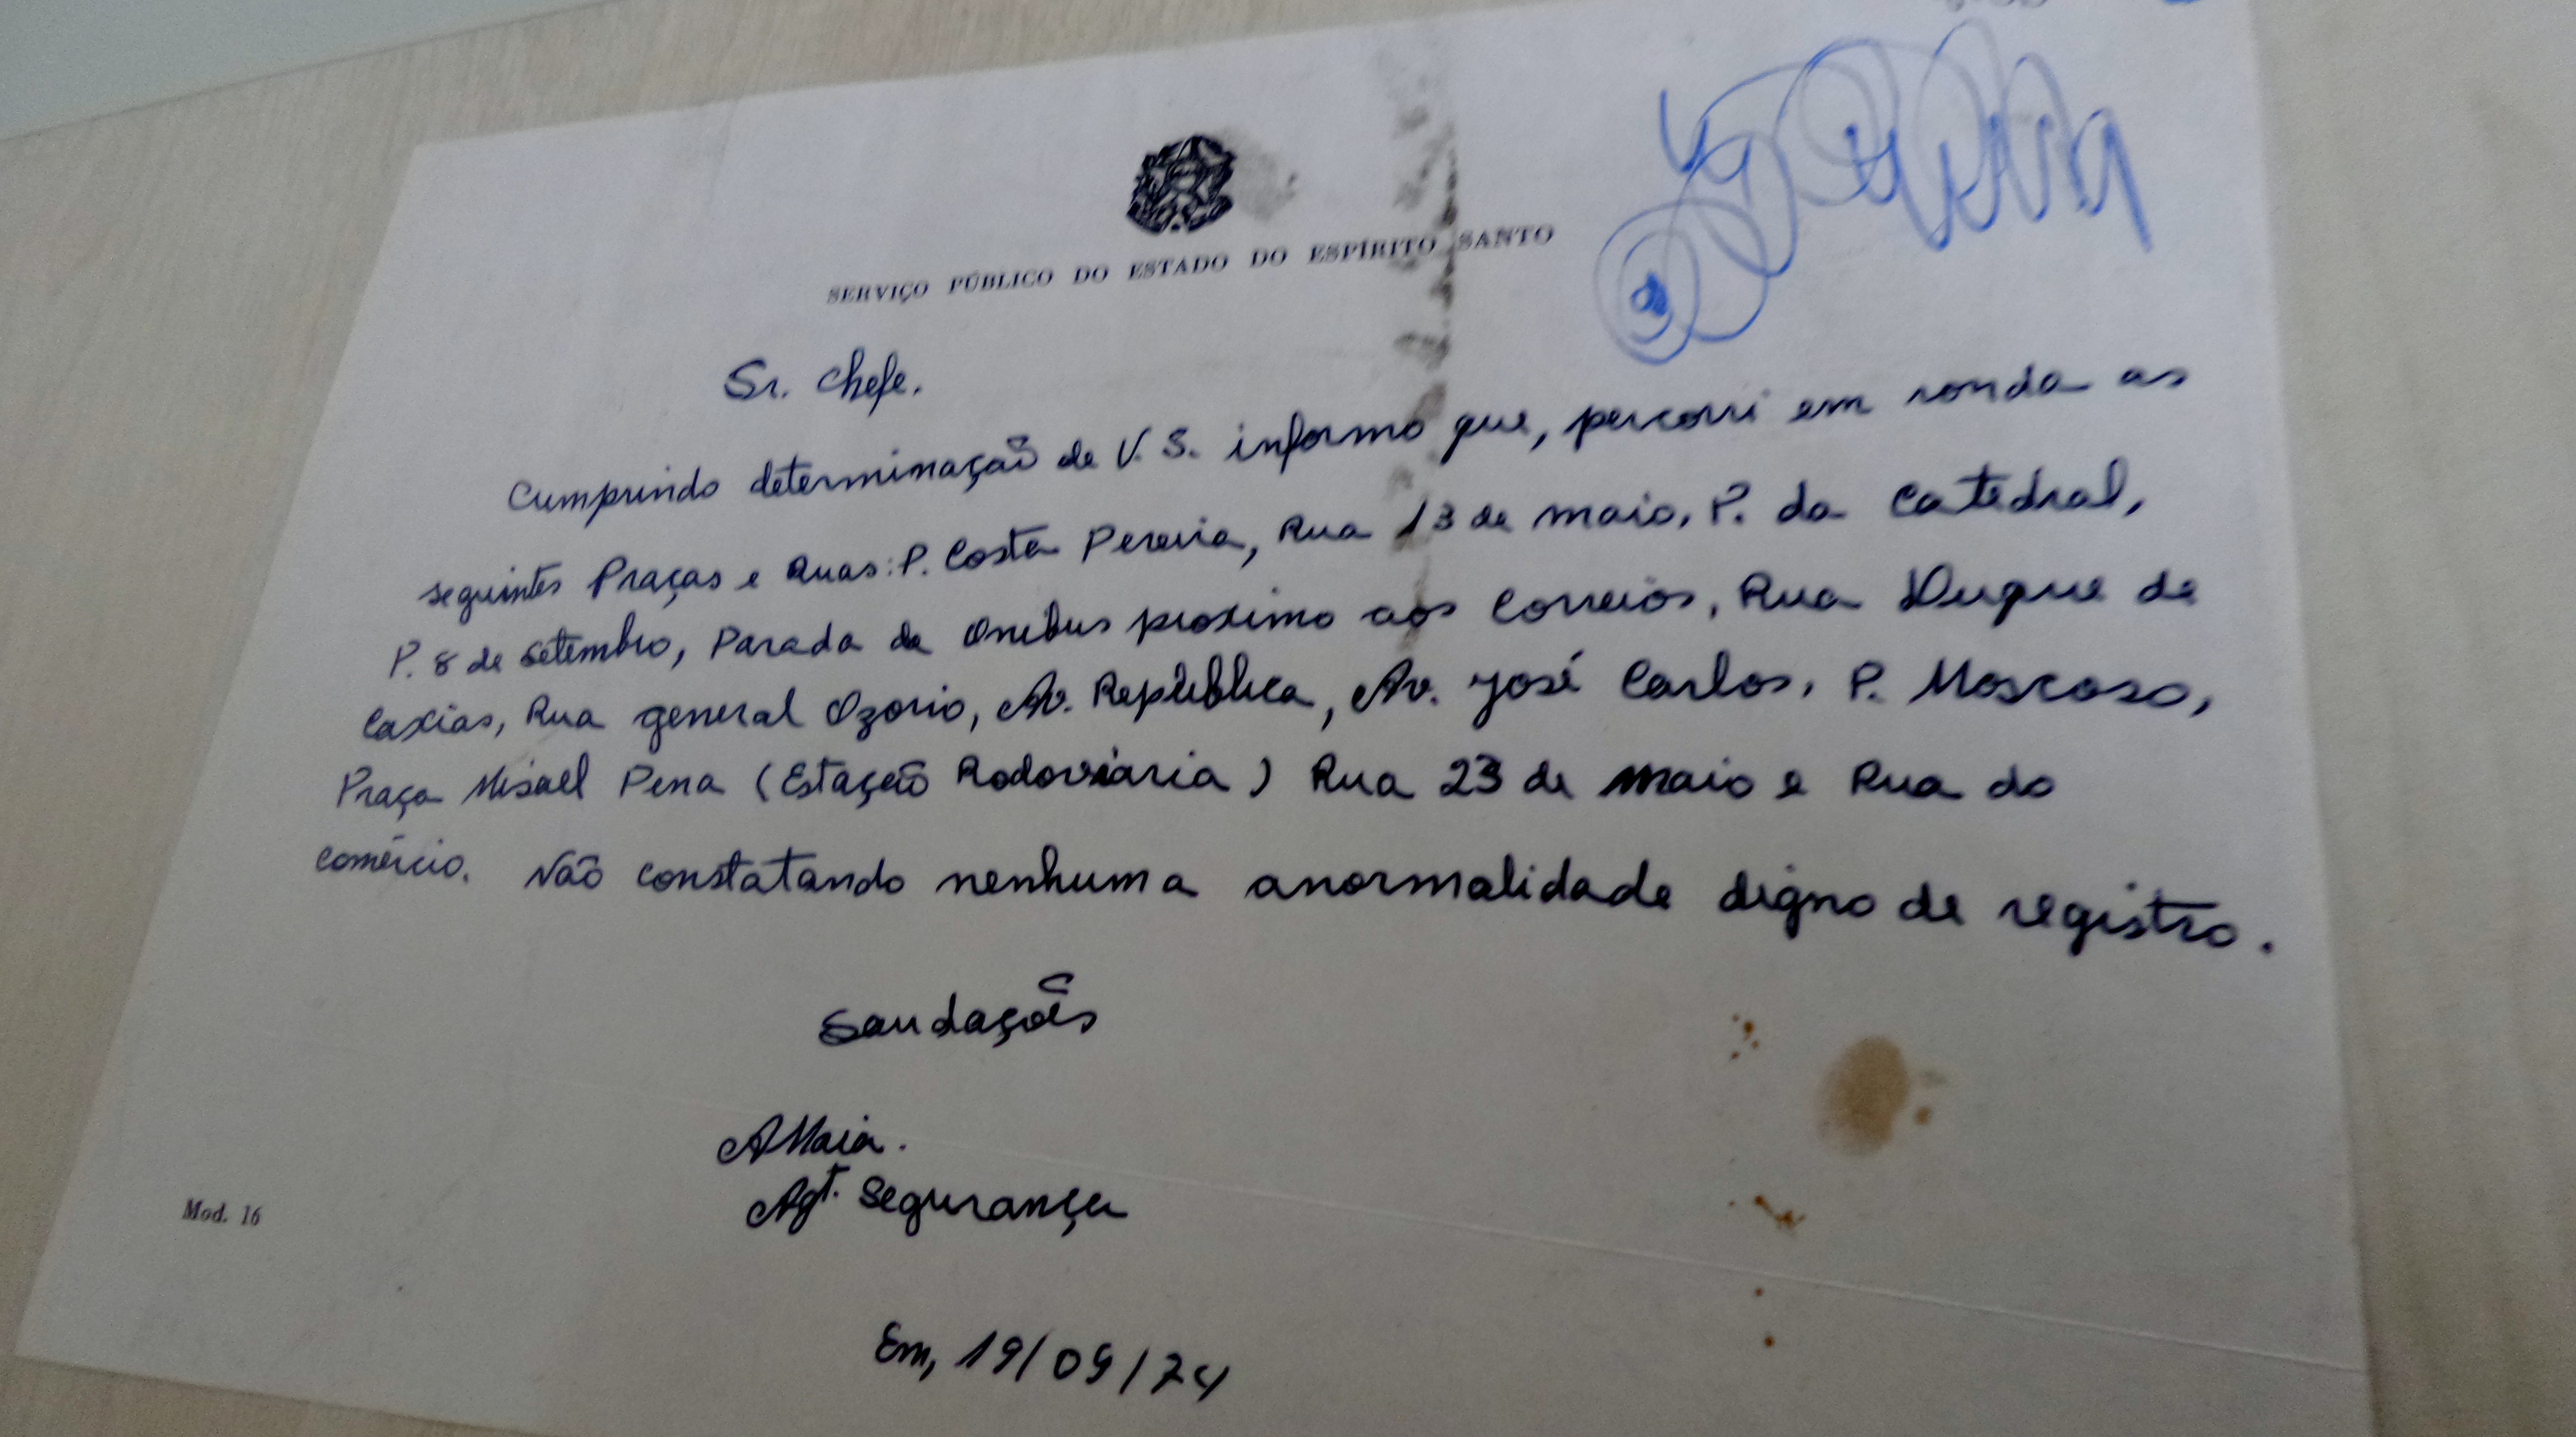 SERVIÇO PÚBLICO DO ESTADO DO ESPÍRITO SANTO
Sr. Chefe.
Cumprindo determinação de V. S. informo que, percorri em ronda as
seguintes Praças e Ruas: P. Costa Pereira, Rua 13 de maio, P. da Catedral,
P. 8 de setembro, Parada de Onibus proximo aos Correios, Rua Duque de
Caxias, Rua general Ozorio, Av. República, Av. José Carlos, P. Moscoso,
Praça Misael Pena (Estação Rodoviaria) Rua 23 de maio e Rua do
comércio. Não constatando nenhuma anormalidade digno de registro.
Saudações
AMaia.
Agt. Segurança
Mod. 16
Em, 19/09/74